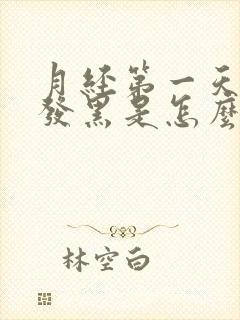 月经第一天
發黑是怎麼
林空白